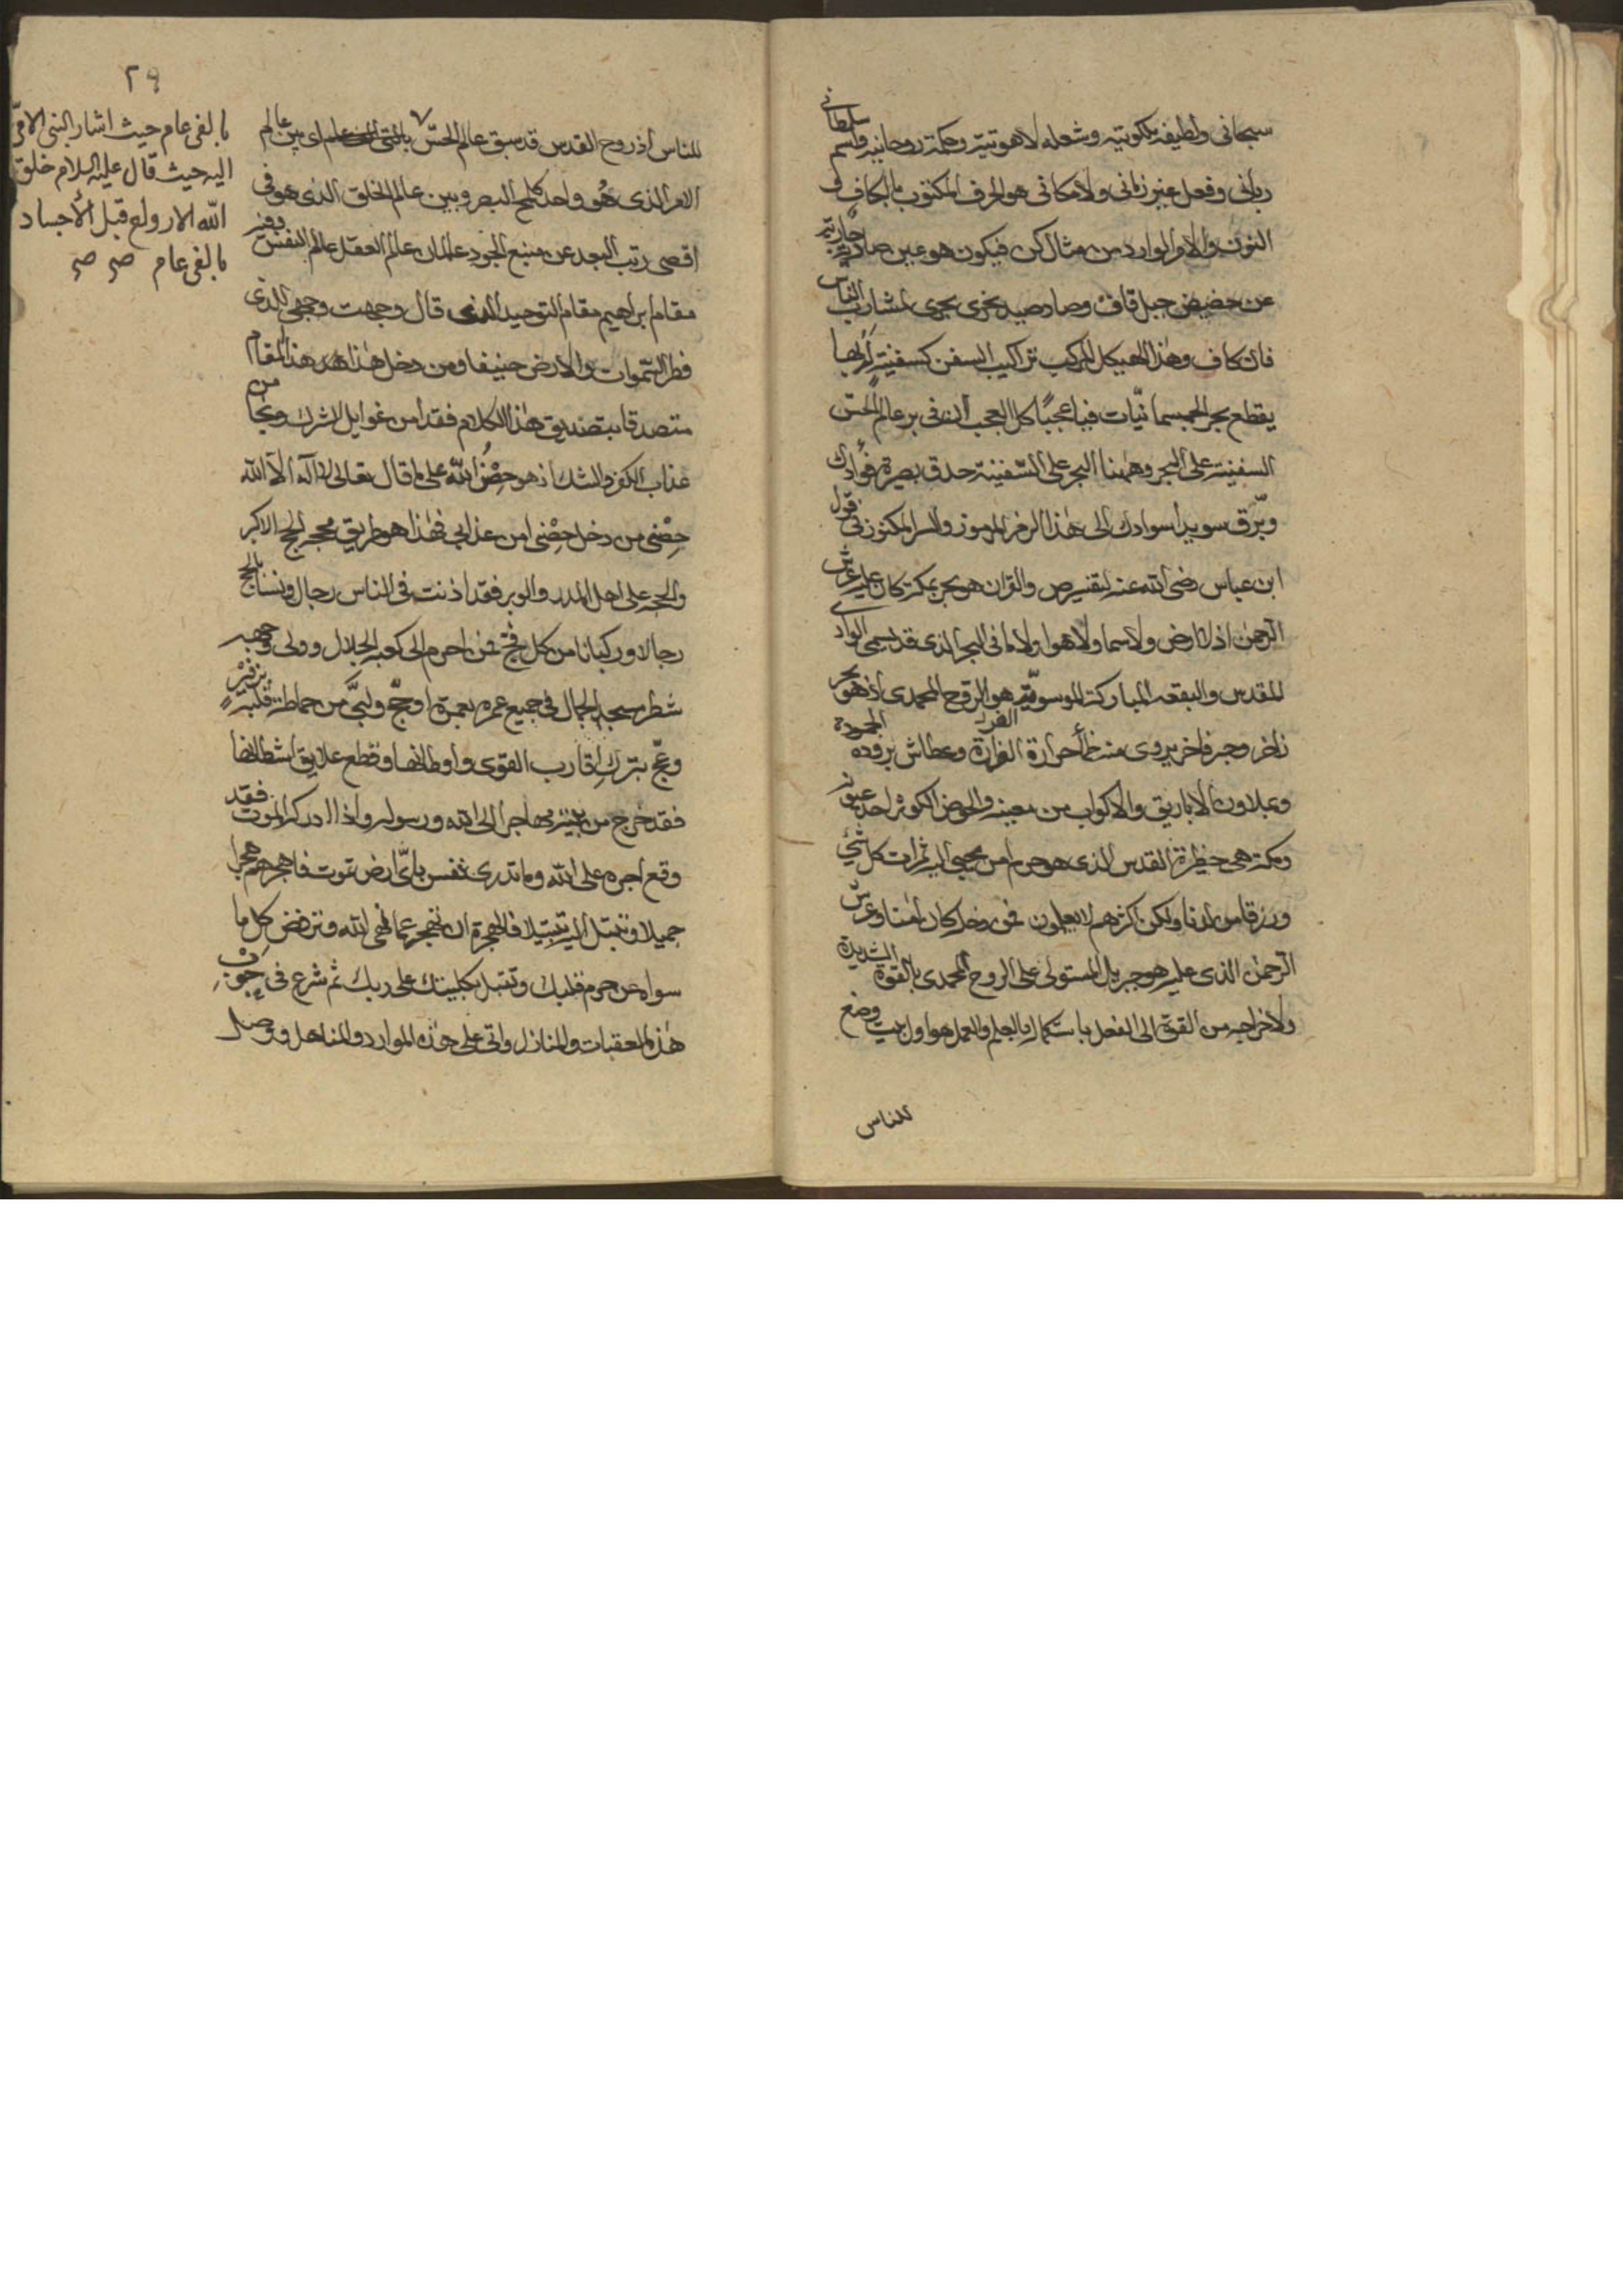 سبحانى ولطيفه ملكوتيه وشعله لاهوتيته وحكمة روحانيه وقسم سلطانى
ربانى وفعل غير زمانى ولامكانى هو الحرف المكتوب بالكاف و
النون والامر الوارد من مثال كن فيكون هو عين صاد جارية
عن حضيض جبل قاف وصاد صيد بحرى يجرى لمشارب الناس
فان كاف وهذا الهيكل المركب تراكيب السفن كسفينة
يقطع بحر الجسمانيّات فيا عجبًا كل العجب ان فى بر عالم الحسّ
السفينة على البحر وههنا البحر على السّفينة حدق بصيرة فؤادك
وبرّق سويدا سوادك الى هذا الرمز المرموز والسر المكنوز فى قول
ابن عباس رضى الله عنه لتفسير ص والقران هو بحر بمكة كان عليه عرش
الرحمن اذ لا ارض ولا سما ولا هوا ولا ما فى البحر الذى قد يسمى الوادى
المقدس والبقعه المباركة الموسويّة هو الروح المحمدى اذ هو بحر
زاخر وحبر فاخر يروى منه ظمأ حرارة وعطاش برودة
ويملاون الاباريق والاكواب من معينه والحوض الكوثر احد عيونه
ومكة هى حظيرة القدس الذى هو حرم امن يجبى اليه ثمرات كل شئ
ورزقا من لدنا ولكن اكثرهم لا يعلمون فمن دخله كان امنا وعرش
الرحمن الذى عليه هو جبريل المستولى على الروح المحمدى بالقوة الشديدة
ولاخراجه من القوة الى الفعل باستكماله بالعلم والعمل هو اول بيت وضع
للناس
٢٩
للناس اذ روح القدس قد سبق عالم الحسّ اى بين عالم
الامر الذى هُو واحد كلمح البصر وبين عالم الخلق الذى هو فى
اقصى رتب البعد عن منبع الجود عالمان عالم العقل عالم النفس وفيه
مقام ابراهيم مقام التوحيد الذى قال وجهت وجهى للذى
فطر السّموات والارض حنيفا ومن دخل هذا المقام
متصدقا بتصديق هذا الكلام فقد امن غوايل الشرك ونجا من
عذاب الكفر والشك اذ هو حِصْنُ اللّه على ما قال تعالى لا اله الا اللّه
حِصْنى من دخل حِصْنى امن عذابى فهذا هو طريق الحج الاكبر
والحج على اهل المدر والوبر فقد اذنت فى الناس رجال ونسا بالحج
رجالا وركبانا من كل فج فمن احرم الى كعبه الجلال وولى وجهه
شطر مسجد الجمال فى جميع عمره بعمرة او حجّ ولبَّى من حماطة قلبه
وعجّ بترك اقارب القوى واوطانها وقطع علايق اشطانها
فقد خرج من بيته مهاجرا الى الله ورسوله واذا ادركه الموت فقد
وقع اجره على اللّه وما تدرى نفس باىّ ارض تموت فاهجرهم هجرا
جميلا وتبتل اليه تبتيلا فالهجرة ان تهجر عما نهى اللّه وترفض كل ما
سواه عن حرم قلبك وتقبل بكليتك على ربك ثم شرع فى خوف
هذه العقبات والمنازل واتى على هذه الموارد والمناهل ووصل
بالفى عام حيث اشار النبى الامّى
اليه حيث قال عليه السلام خلق
اللّه الارواح قبل الاجساد
بالفى عام صح صح